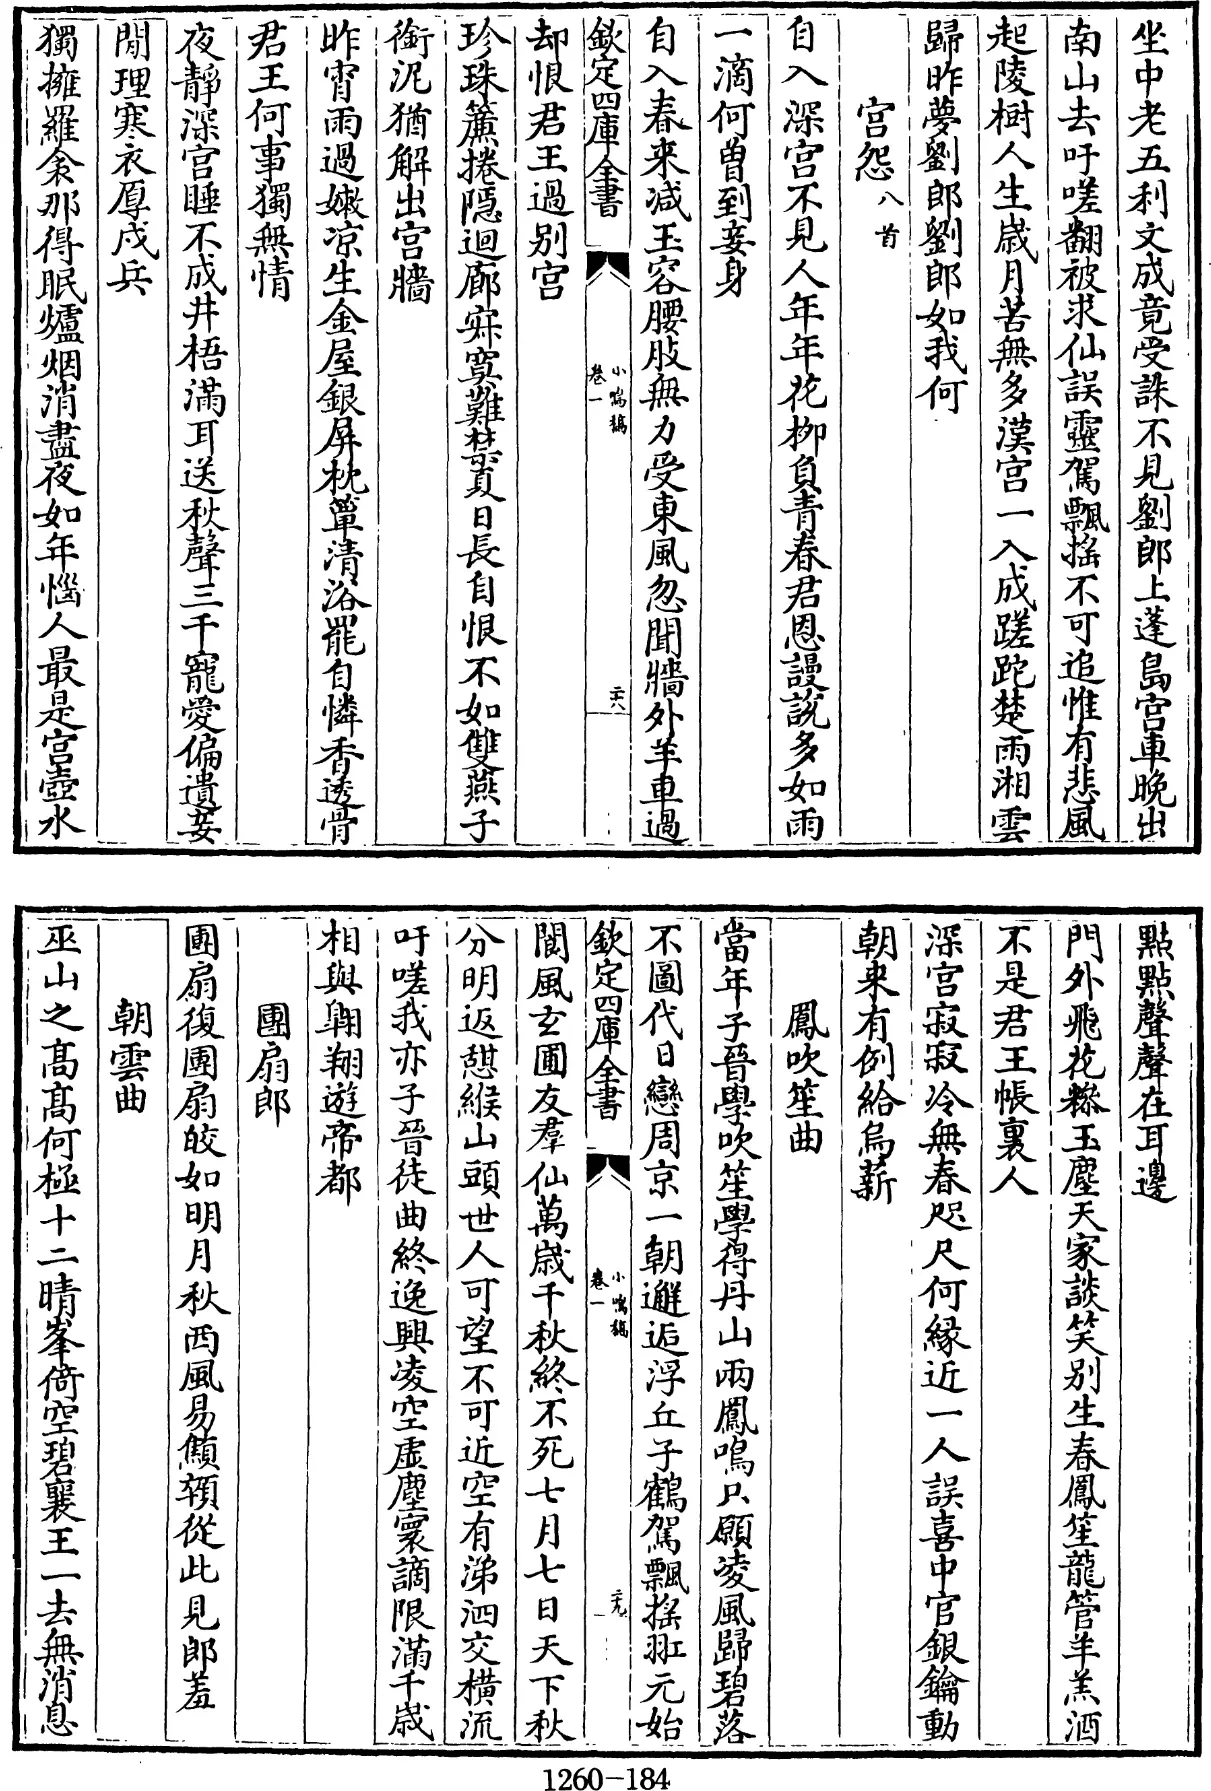 坐中老五利文成竟受誅不見劉郎上蓬島宫車晚出
南山去吁嗟翻被求仙誤靈駕飄揺不可追惟有悲風
起陵樹人生歲月苦無多漢宫一入成蹉跎楚雨湘雲
歸昨夢劉郎劉郎如我何
宫怨八首
自入深宫不見人年年花柳負青春君恩謾說多如雨
一滴何曽到妾身
自入春來减玉容腰肢無力受東風忽聞牆外羊車過
欽定四庫全書
小鳴稿
卷一
二十八
却恨君王過别宫
珍珠簾捲隠迴廊寂寞難禁夏日長自恨不如雙燕子
銜泥猶解出宫牆
昨宵雨過嫩凉生金屋銀屏枕簟清浴罷自憐香透骨
君王何事獨無情
夜靜深宫睡不成井梧滿耳送秋聲三千寵愛偏遺妾
閒理寒衣厚戍兵
獨擁羅衾那得眠爐烟消盡夜如年惱人最是宫壺水
點點聲聲在耳邊
門外飛花糝玉塵天家談笑别生春鳳笙龍管羊羔酒
不是君王帳裏人
深宫寂寂冷無春咫尺何縁近一人誤喜中官銀鑰動
朝來有例給烏薪
鳳吹笙曲
當年子晉學吹笙學得丹山兩鳳鳴只願凌風歸碧落
不圖代日戀周京一朝邂逅浮丘子鶴駕飄揺羾元始
欽定四庫全書
小鳴稿
卷一
二十九
閬風玄圃友羣仙萬歲千秋終不死七月七日天下秋
分明返憇緱山頭世人可望不可近空有涕泗交橫流
吁嗟我亦子晉徒曲終逸興凌空虚塵寰謫限滿千歲
相與翺翔遊帝都
團扇郎
團扇復團扇皎如明月秋西風易顦顇從此見郎羞
朝雲曲
巫山之髙髙何極十二晴峯倚空碧襄王一去無消息
1260-184